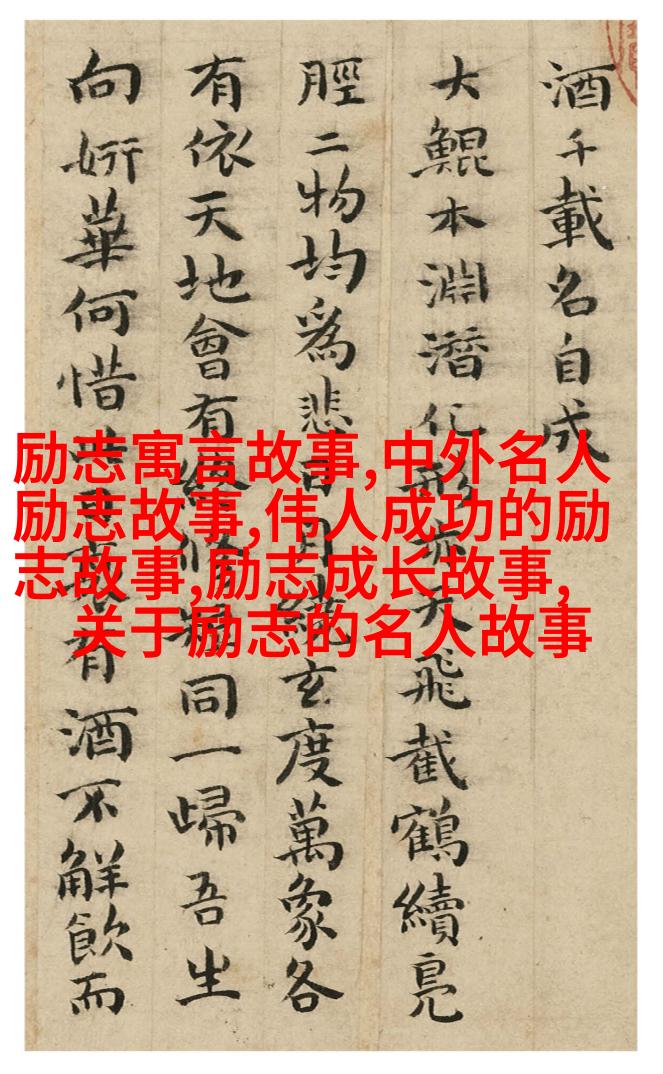 酒千載名自成
大鯤本淵潛化飛截鶴續鳧
脛二物均爲悲日月玄度萬象各
有依天地會有同一歸吾生
向妍華何惜有酒不解飲而
励志寓言故事,中外名人
励志故事,伟人成功的励
志故事,励志成长故事,
关于励志的名人故事